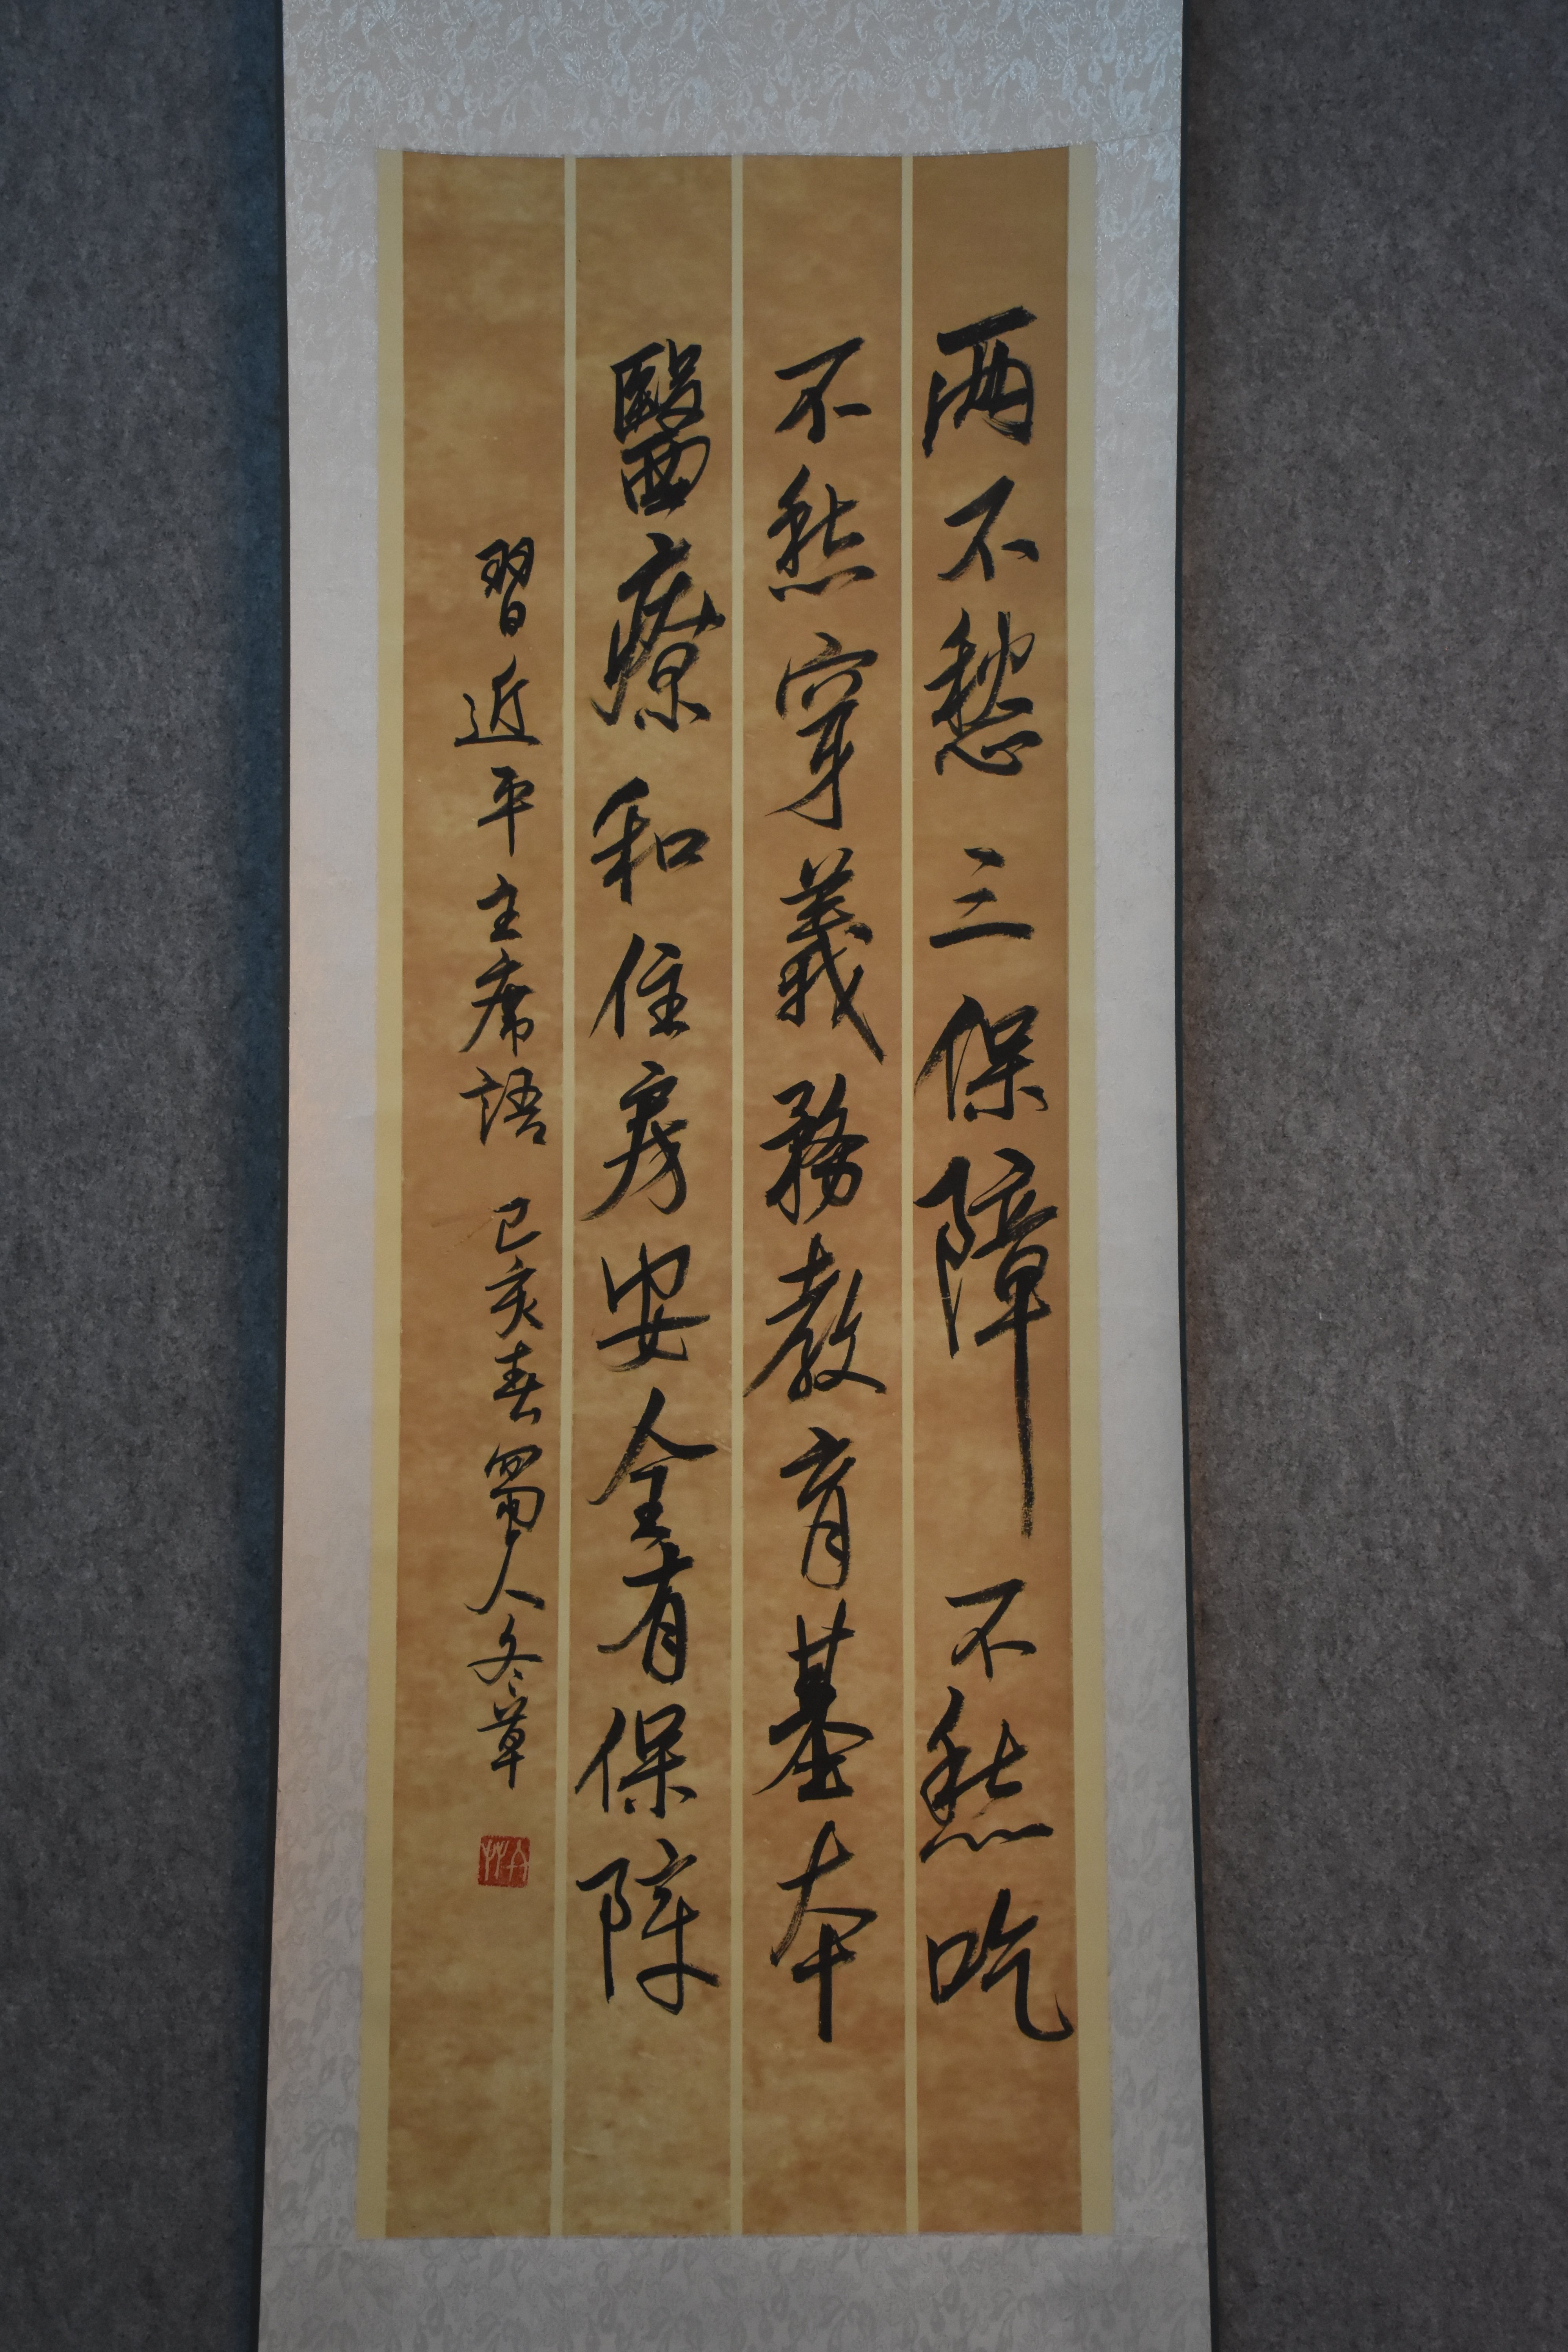 两不愁三保障不愁吃
不愁穿義務教育基本
醫療和住房安全有保障
習近平主席語 己亥春蜀人冬草